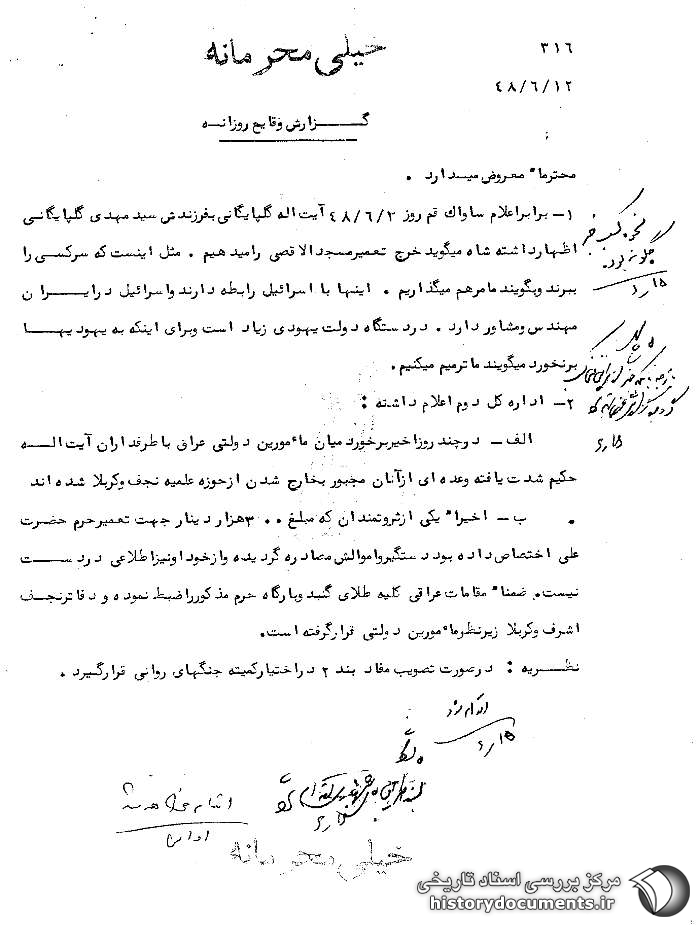 خیلی محرمانه
۳۱۶
۴۸/۶/۱۲
گزارش وقایع روزانه
محترما" معروض میدارد .
۱- برابر اعلام ساواک قم روز ۴۸/۶/۲ آیت اله گلپایگانی بفرزندش سید مهدی گلپایگانی
اظهار داشته شاه میگوید خرج تعمیر مسجد الاقصی را میدهیم . مثل اینست که سر کسی را
ببرند و بگویند ما مرهم میگذاریم . اینها با اسرائیل رابطه دارند و اسرائیل در ایران
مهندس و مشاور دارد . در دستگاه دولت یهودی زیاد است و برای اینکه به یهودیها
برنخورد میگویند ما ترمیم میکنیم .
۲- اداره کل دوم اعلام داشته :
الف - در چند روز اخیر برخورد میان مأمورین دولتی عراق با طرفداران آیت اله
حکیم شدت یافته وعده ای از آنان مجبور بخارج شدن از حوزه علمیه نجف و کربلا شده اند
.
ب - اخیرا" یکی از ثروتمندان که مبلغ ۳۰۰ هزار دینار جهت تعمیر حرم حضرت
علی اختصاص داده بود دستگیر و اموالش مصادره گردیده و از خود او نیز اطلاعی در دست
نیست. ضمنا" مقامات عراقی کلیه طلای گنبد و بارگاه حرم مذکور را ضبط نموده و دفاتر نجف
اشرف و کربلا زیر نظر مأمورین دولتی قرار گرفته است.
نظریه : در صورت تصویب مفاد بند ۲ در اختیار کمیته جنگهای روانی قرار گیرد .
اقدام شد
خیلی محرمانه
مرکز بررسی اسناد تاریخی
historydocuments.ir